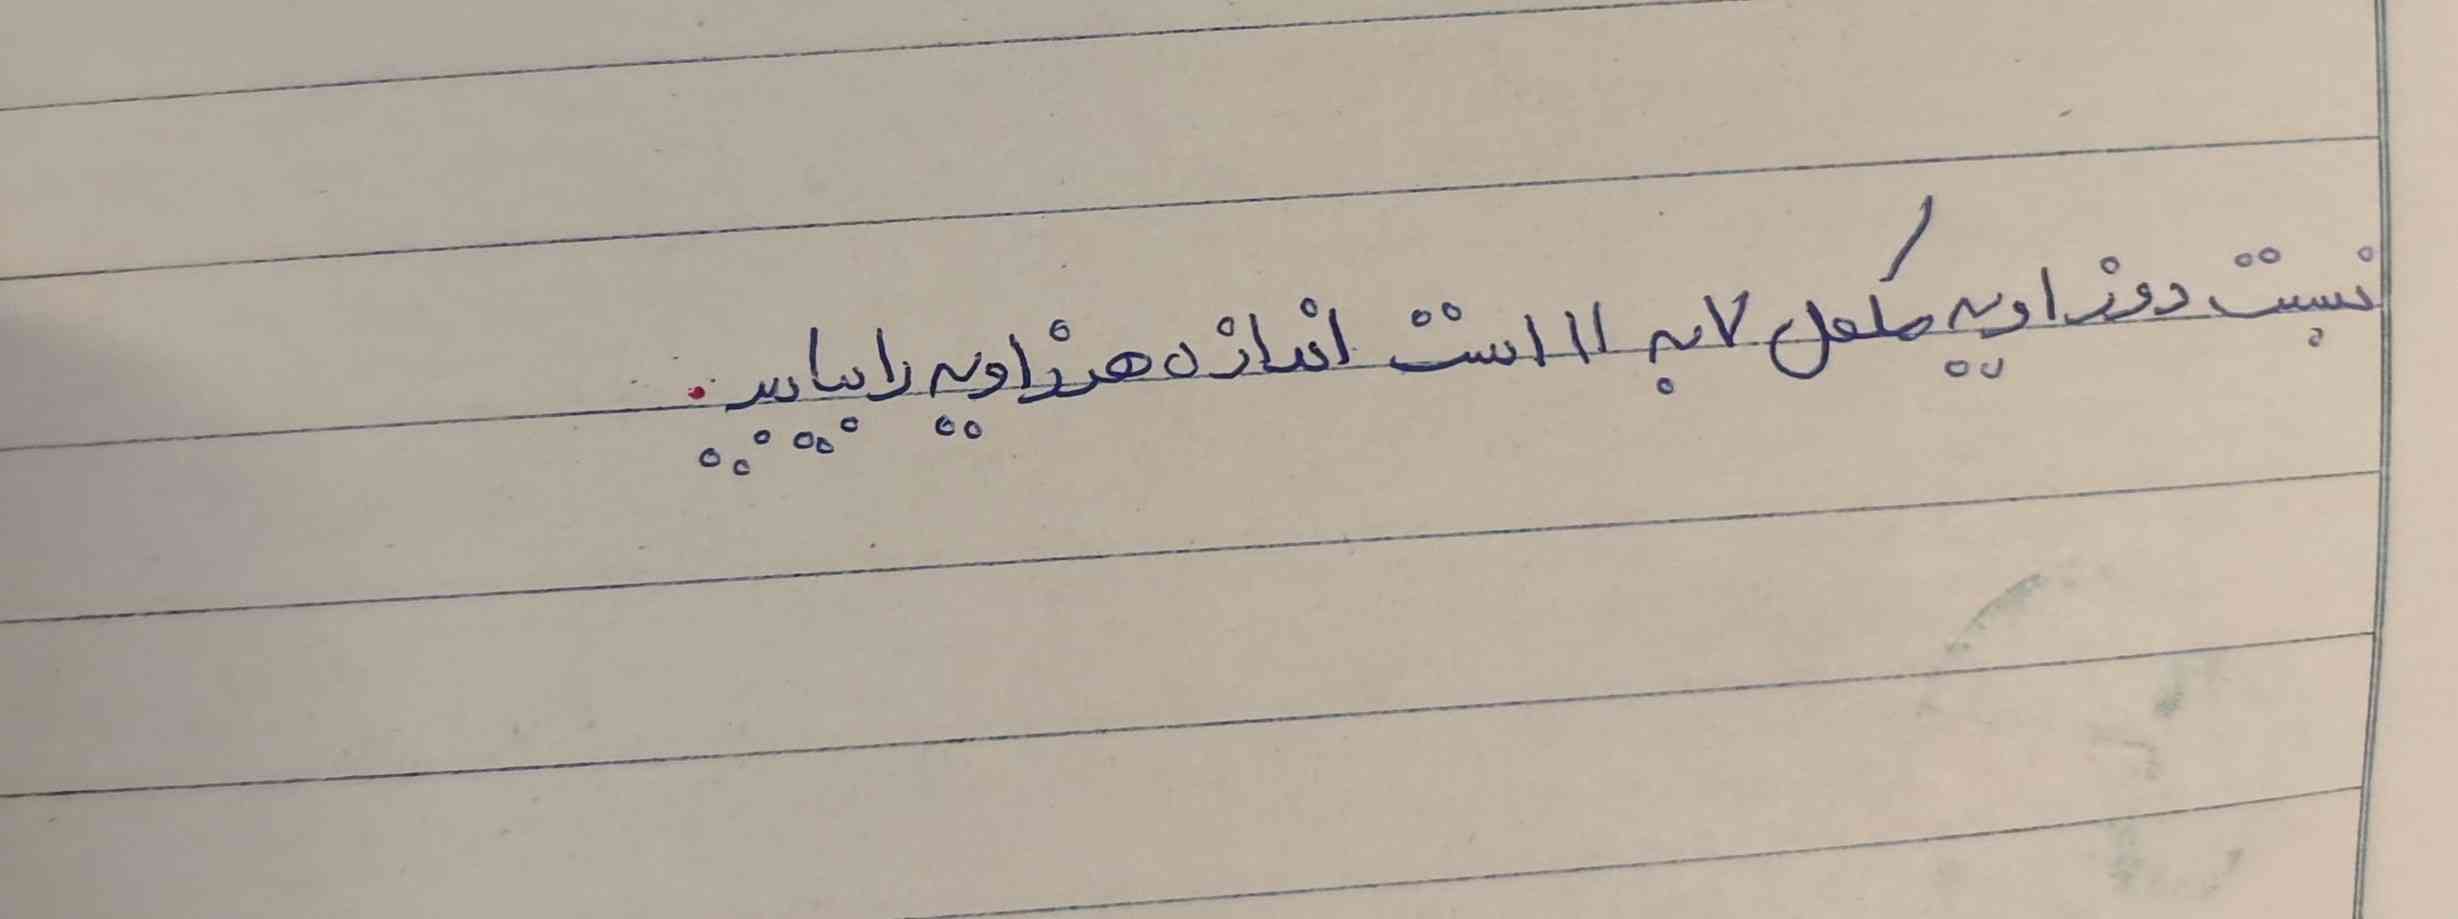 نسبت دو زاویه مکمل ۷ به ۱۱ است اندازه هر زاویه را بیابید.